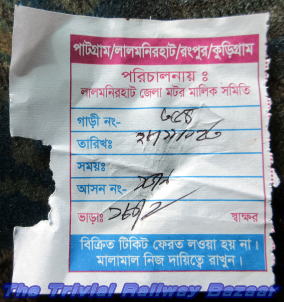 পাটগ্রাম/লালমনিরহাট/রংপুর/কুড়িগ্রাম
পরিচালনায় ঃ
লালমনিরহাট জেলা মটর মালিক সমিতি
গাড়ী নং-
তারিখঃ
সময়ঃ
আসন নং-
ভাড়াঃ স্বাক্ষর
বিক্রিত টিকিট ফেরত লওয়া হয় না।
মালামাল নিজ দায়িত্বে রাখুন।
The Trivial Railway Bazaar